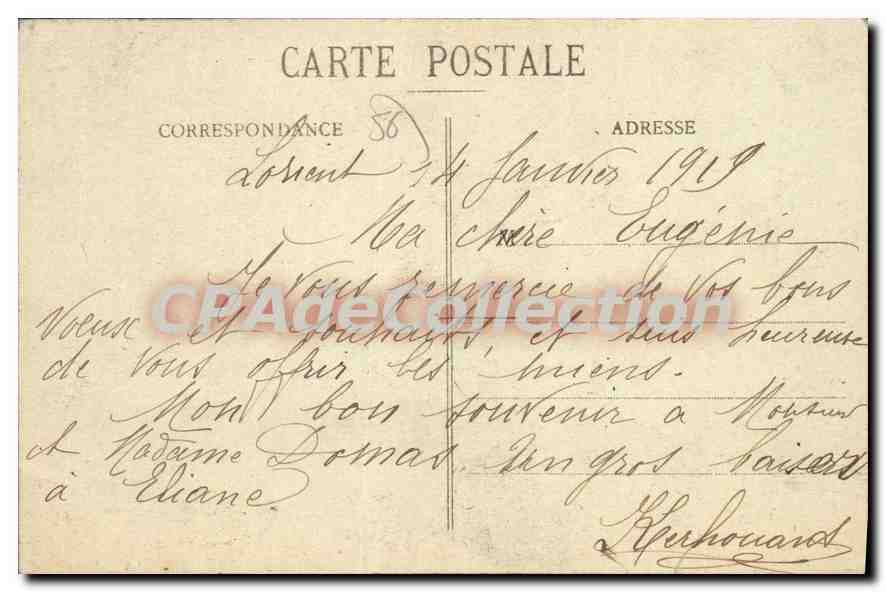 CARTE POSTALE
CORRESPONDANCE
56
ADRESSE
Lorient 14 Janvier 1919
Ma chère Eugénie
Je vous remercie de vos bons
voeux et souhaits, et suis heureuse
de vous offrir les miens.
Mon bon souvenir à Monsieur
et Madame Domas. Un gros baiser
à Eliane.
Kerhouant
CPAgeCollection.net